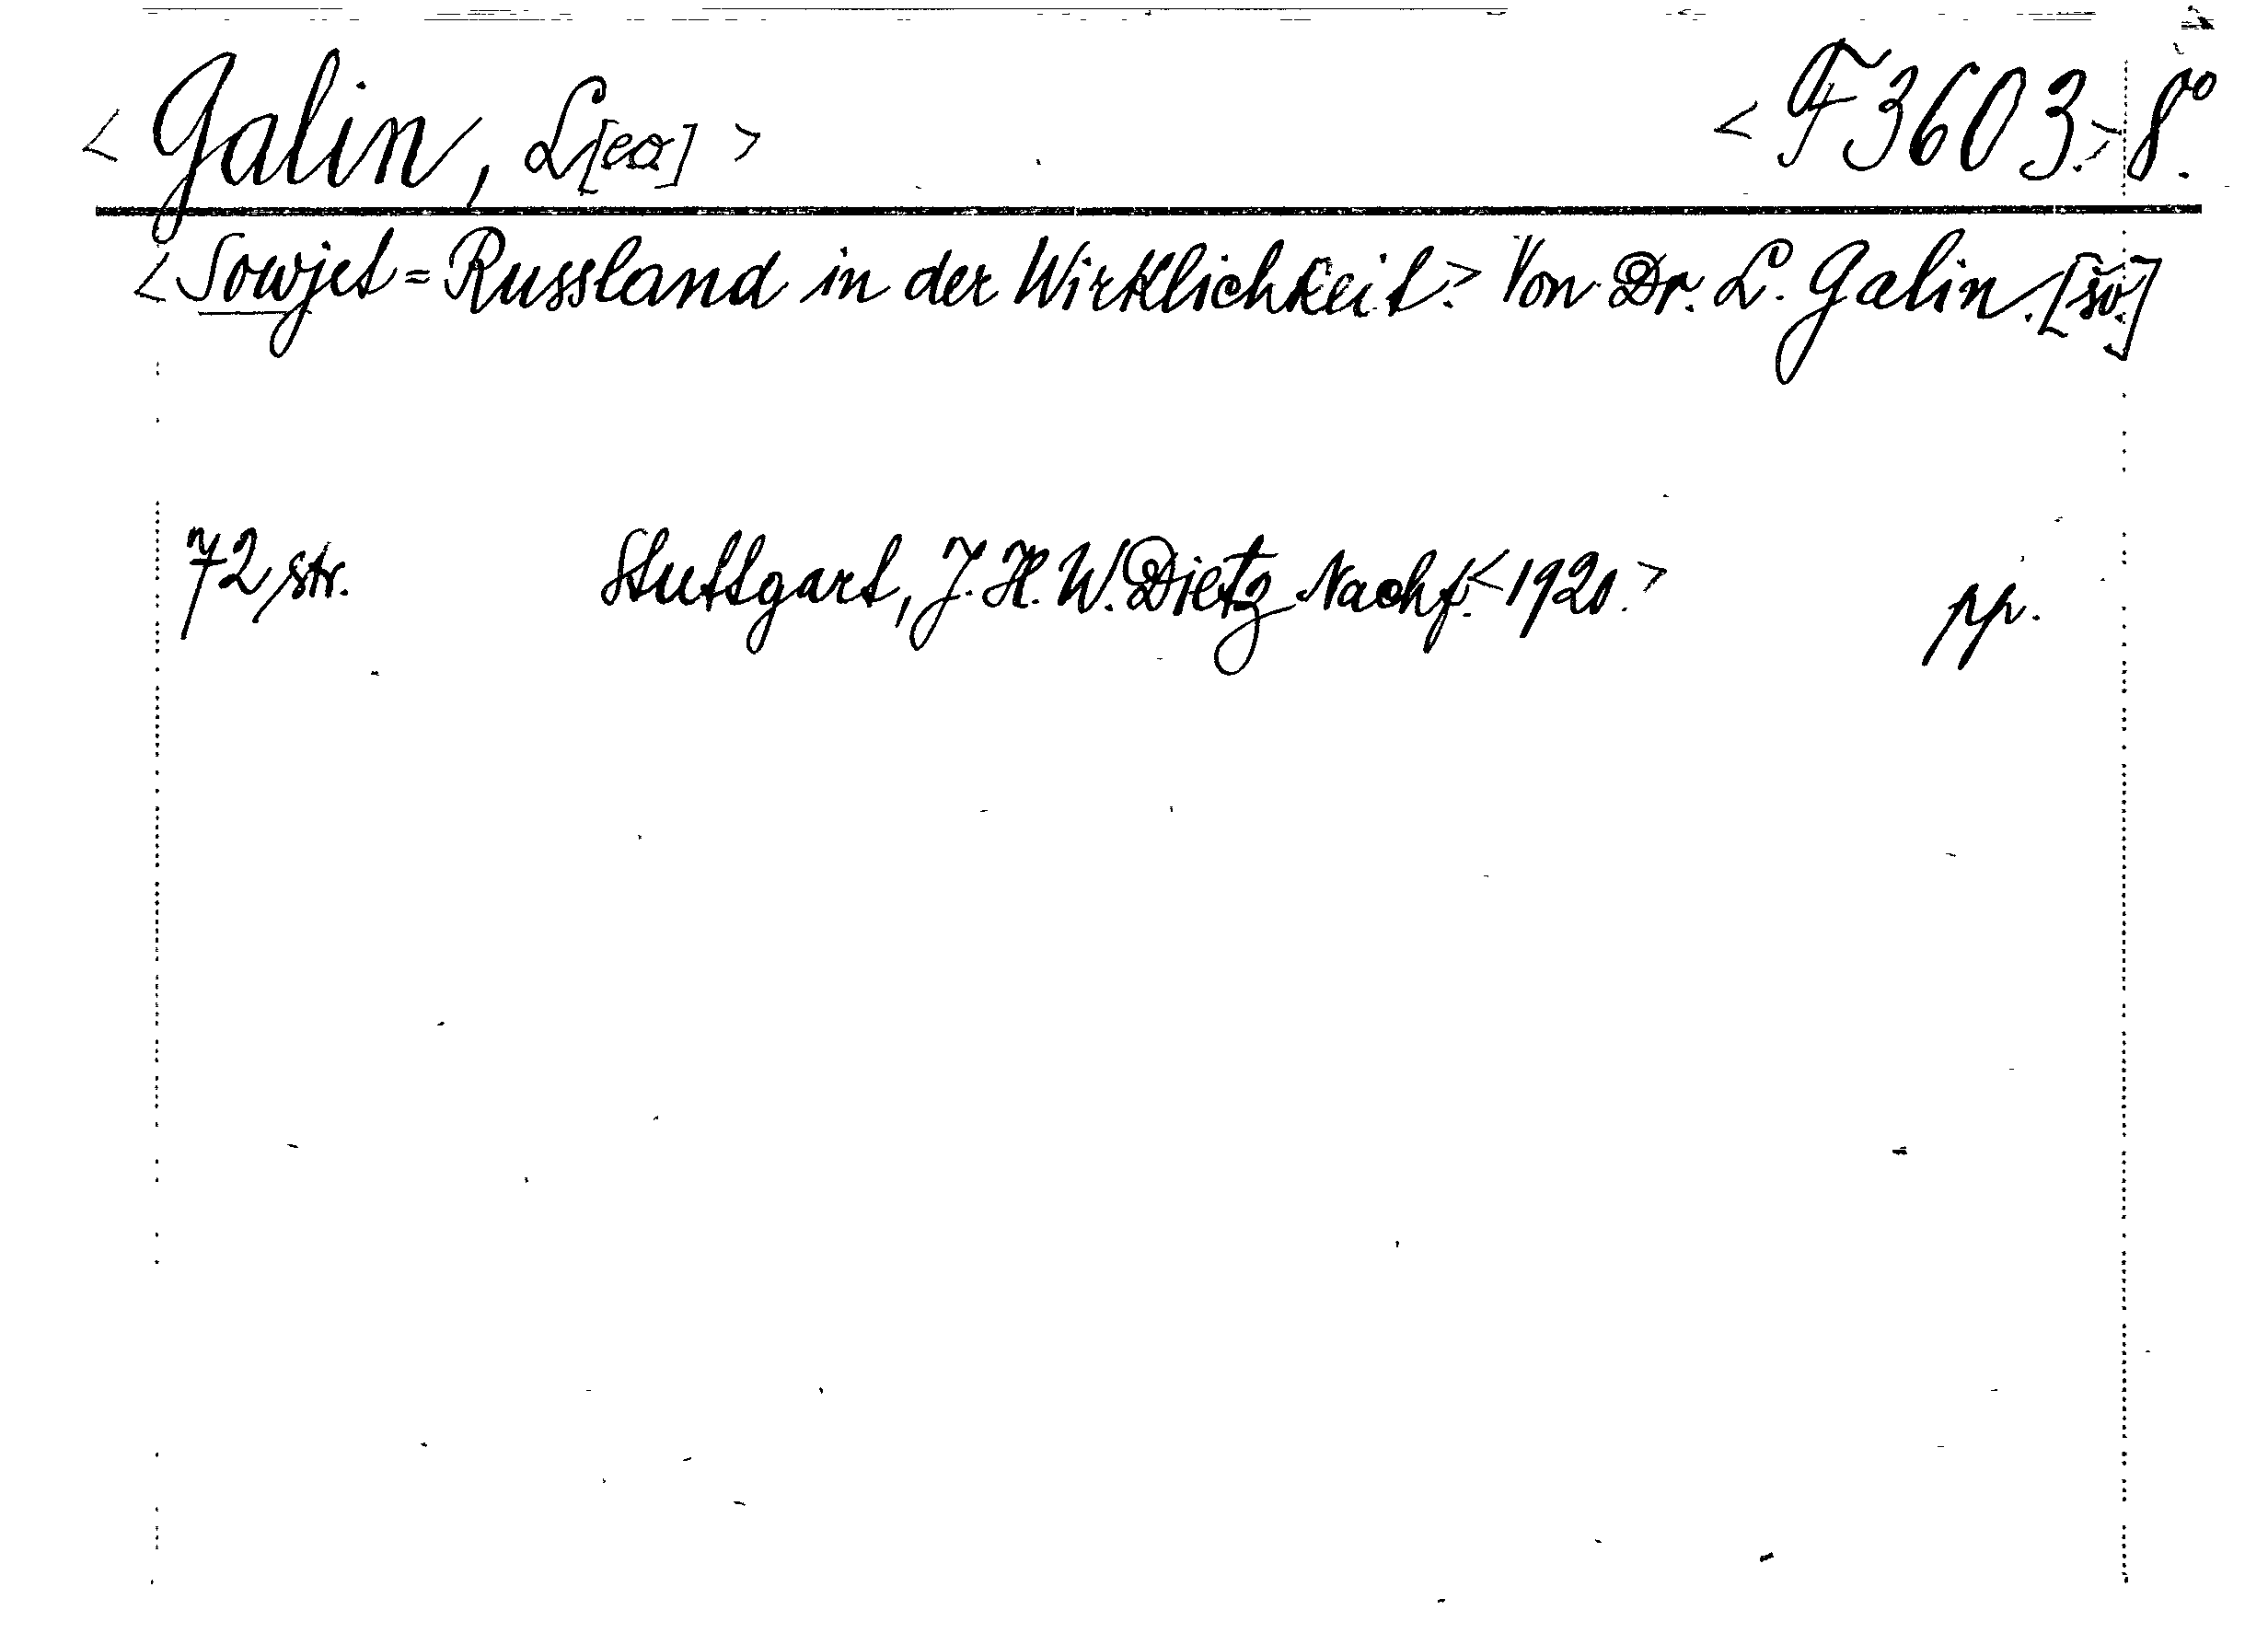 < Galin, L[eo] > < F 3603.> 8°.
< Sowjet=Russland in der Wirklichkeit.> Von Dr. L. Galin. [šv.]
72 str. Stuttgart, J. H. W. Dietz Nachf. < 1920. > pp.